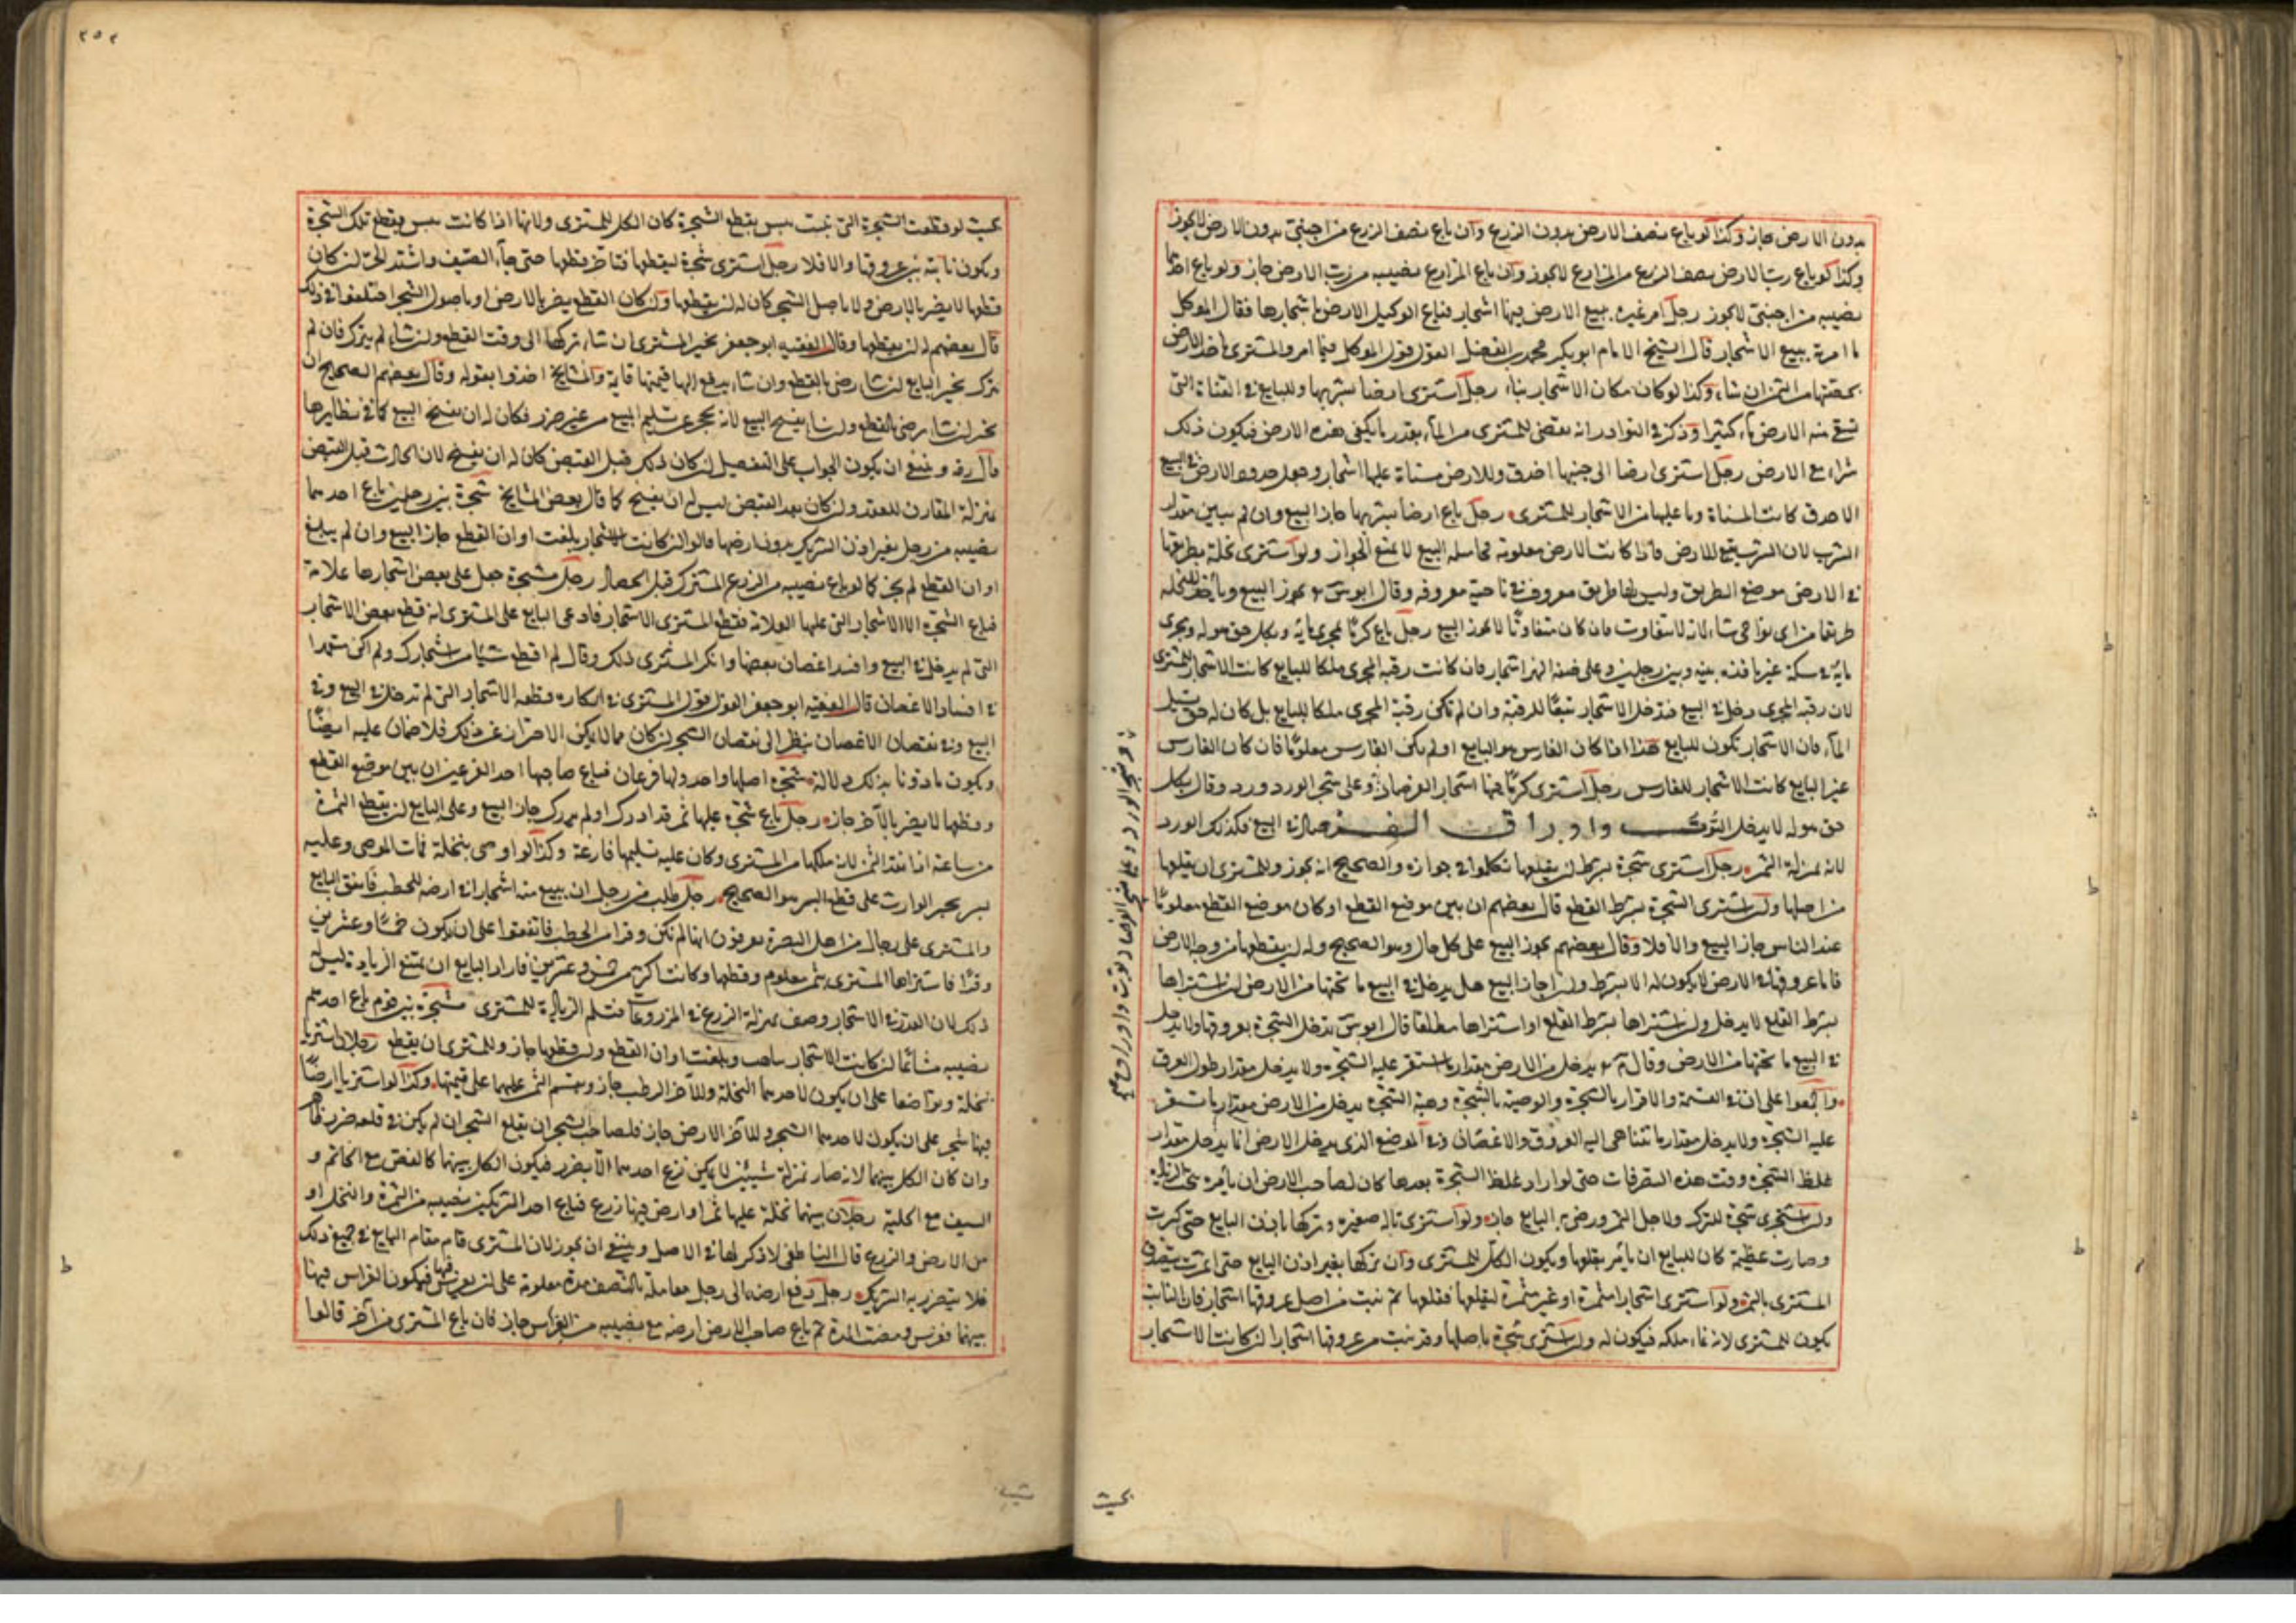 بدون الارض جاز وكذا لو باع نصف الارض بدون الزرع وان باع نصف الزرع من اجنبي بدون الارض لا يجوز
وكذا لو باع رب الارض نصف الزرع من المزارع لا يجوز وان باع المزارع نصيبه من رب الارض جاز ولو باع احدهما
نصيبه من اجنبي لا يجوز رجل امر غيره ببيع الارض فيها اشجار فباع الوكيل الارض باشجارها فقال الموكل
ما امرته ببيع الاشجار قال الشيخ الامام ابو بكر محمد بن الفضل القول قول الموكل فيما امر والمشترى ياخذ الارض
بحصتها من الثمن ان شاء وكذا لو كان مكان الاشجار بناء رجل اشترى ارضا بشربها وللبايع في القناة التي
تسقى منه الارض ماء كثيرا وذكر في النوادر انه يقضى للمشترى من الماء بقدر ما يكفى هذه الارض فيكون ذلك
شراء مع الارض رجل اشترى ارضا الى جنبها اخدق وللارض مسناة عليها اشجار وجعل حدود الارض في البيع
الاخدق كانت المسناة وما عليها من الاشجار للمشترى رجل باع ارضا بشربها جاز البيع وان لم يبين مقدار
الشرب لان الشرب تبع للارض فاذا كانت الارض معلومة فجاهله البيع لا تمنع الجواز ولو اشترى نخلة بطريقها
في الارض موضع الطريق وليس لها طريق معروف في ناحية معروفة وقال ابو يوسف يجوز البيع وياخذ للنخلة
طريقا من اى نواحى شاء لانه لا يتفاوت فان كان متفاوتا لا يجوز البيع رجل باع كرما بمجرى مائه وبكل حق هو له ومجرى
مائه في سكة غير نافذه بينه وبين رجلين وعلى ضفة النهر اشجار فان كانت رقبة المجرى ملكا للبايع كانت الاشجار للمشترى
لان رقبة المجرى دخل في البيع فتدخل الاشجار تبعا للرقبة وان لم تكن رقبة المجرى ملكا للبايع بل كان له حق تسييل
الماء فان الاشجار تكون للبايع هذا اذا كان الغارس هو البايع او لم يكن الغارس معلوما فان كان الغارس
غير البايع كانت الاشجار للغارس رجل اشترى كرما فيها اشجار الفرصاد وعلى شجر الورد ورد وقال بكل
حق هو له لا يدخل التوت واوراق الفرصاد في البيع فكذلك الورد
لانه بمنزلة الثمر رجل اشترى شجرة بشرط ان يقلعها تكلموا في جوازه والصحيح انه يجوز وللمشترى ان يقلعها
من اصلها وان اشترى الشجرة بشرط القطع قال بعضهم ان بين موضع القطع او كان موضع القطع معلوما
عند الناس جاز البيع والا فلا وقال بعضهم يجوز البيع على كل حال وهو الصحيح وله ان يقطعها من وجه الارض
فاما عروقها في الارض لا يكون له الا بشرط واذا جاز البيع هل يدخل في البيع ما تحتها من الارض ان اشتراها
بشرط القلع لا يدخل وان اشتراها بشرط القلع او اشتراها مطلقا قال ابو يوسف تدخل الشجرة بعروقها ولا يدخل
في البيع ما تحتها من الارض وقال محمد يدخل من الارض مقدار ما استقر عليه الشجرة ولا يدخل مقدار طول العرق
واجمعوا على ان في القسمة والاقرار بالشجرة والوصية بالشجرة وهبة الشجرة يدخل من الارض مقدار ما يستقر
عليه الشجرة ولا يدخل مقدار ما تتناهى اليه العروق والاغصان وفي الموضع الذى يدخل الارض انما يدخل مقدار
غلظ الشجرة وقت هذه التصرفات حتى لو ازداد غلظ الشجرة بعدها كان لصاحب الارض ان يامره بنحت الزيادة
وان اشترى شجرة للترك ولاجل الثمر ورضى به البايع جاز ولو اشترى تالة صغيرة وتركها باذن البايع حتى كبرت
وصارت عظيمة كان للبايع ان يأمر بقلعها ويكون الكل للمشترى وان تركها بغير اذن البايع حتى اثمرت يتصدق
المشترى بالثمر ولو اشترى اشجارا مثمرة او غير مثمرة ليقلعها فقلعها ثم نبت من اصل عروقها اشجار فان النابت
يكون للمشترى لانه نماء ملكه فيكون له وان اشترى شجرة باصلها وقد نبت من عروقها اشجار ان كانت الاشجار
بحيث
٢٥٢
بحيث لو قطعت الشجرة التى نبتت يبس بقطع الشجرة كان الكل للمشترى ولانها اذا كانت يبس بقطع تلك الشجرة
ويكون نابتة من عروقها والا فلا رجل اشترى شجرة ليقطعها فتاخر قطعها حتى جاء الصيف واشتد الحر ان كان
قطعها لا يضر بالارض ولا باصل الشجر كان له ان يقطعها وان كان القطع يضر بالارض او باصول الشجر اختلفوا في ذلك
قال بعضهم له ان يقطعها وقال الفقيه ابو جعفر يخير المشترى ان شاء تركها الى وقت القطع وان شاء لم يترك فان لم
يترك يخير البايع ان شاء رضى بالقطع وان شاء يدفع اليها قيمتها قايمة والمشايخ اخذوا بقوله وقال بعضهم الصحيح ان
يخير ان شاء رضى بالقطع وان شاء يفسخ البيع لانه يعجز عن تسليم المبيع من غير ضرر فكان له ان يفسخ البيع كما في نظايرها
قال رضه وينبغى ان يكون الجواب على التفصيل ان كان ذلك قبل القبض كان له ان يفسخ لان الحادث قبل القبض
بمنزلة المقارن للعقد وان كان بعد القبض ليس له ان يفسخ كما قال بعض المشايخ شجرة بين رجلين باع احدهما
نصيبه من رجل بغير اذن الشريك بدون ارضها قالوا ان كانت الاشجار بلغت اوان القطع جاز البيع وان لم يبلغ
اوان القطع لم يجز كما لو باع نصيبه من الزرع المشترك قبل الحصاد رجل له مشجرة جعل على بعض اشجارها علامة
فباع الشجرة الا الاشجار التى عليها العلامة فقطع المشترى الاشجار فادعى البايع على المشترى انه قطع بعض الاشجار
التى لم يدخل في البيع وافسد اغصان بعضها وانكر المشترى ذلك وقال لم اقطع شيئا من اشجارك ولم اكن متعمدا
في افساد الاغصان قال الفقيه ابو جعفر القول قول المشترى في انكاره قطع الاشجار التى لم تدخل في البيع وفي
البيع وفي نقصان الاغصان ينظر الى نقصان الشجر ان كان مما لا يمكن الاحتراز عن ذلك فلا ضمان عليه ايضا
ويكون ماذونا بذلك دلالة شجرة اصلها واحد ولها فرعان فباع صاحبها احد الفرعين ان بين موضع القطع
وقطعها لا يضر بالآخر جاز رجل باع شجرة عليها ثمر قد ادرك او لم يدرك جاز البيع وعلى البايع ان يقطع الثمرة
من ساعته اذا نقد الثمن لانه ملكها من المشترى وكان عليه تسليمها فارغة وكذا لو اوصى بنخلة فمات الموصى وعليه
بسر يجبر الوارث على قطع البسر هو الصحيح رجل طلب من رجل ان يبيع منه اشجارا في ارضه للحطب فاتفق البايع
والمشترى على رجال من اهل البصرة يعرفون انها لم تكن وقرا من الحطب فاتفقوا على ان يكون خمسا وعشرين
وقرا فاشتراها المشترى بثمن معلوم وقطعها وكانت اكثر من خمس وعشرين فاراد البايع ان يمنع الزيادة ليس له
ذلك لان القدر في الاشجار وصف بمنزلة الزرع في المزروعات فتسلم الزيادة للمشترى شجرة بين قوم باع احدهم
نصيبه مشاعا ان كانت الاشجار وبلغت اوان القطع وان قطعها جاز وللمشترى ان يقطع رجلان اشتريا
نخلة وتواضعا على ان يكون لاحدهما النخلة وللآخر الرطب جاز ويقسم الثمن عليهما على قيمتها وكذا لو اشتريا ارضا
فيها شجر على ان يكون لاحدهما الشجر وللآخر الارض جاز فلصاحب الشجر ان يقلع الشجر ان لم يكن في قلعه ضرر ظاهر
وان كان الكل بينهما لانه صار بمنزلة شيئين لا يمكن نزع احدهما الا بضرر فيكون الكل بينهما كالفص مع الخاتم و
السيف مع الحلية رجلان بينهما نخلة عليها ثمر او ارض فيها زرع فباع احد الشريكين نصيبه من الثمرة والنخل او
من الارض والزرع قال الناطفى لا ذكر لها في الاصل وينبغى ان يجوز لان المشترى قام مقام البايع في جميع ذلك
فلا يتضرر به الشريك رجل دفع ارضه الى رجل معاملة بالنصف مدة معلومة على ان يغرس فيها فيكون الغراس فيها
بينهما فغرس ومضت المدة ثم باع صاحب الارض ارضه مع نصيبه من الغراس جاز فان باع المشترى من آخر قالوا